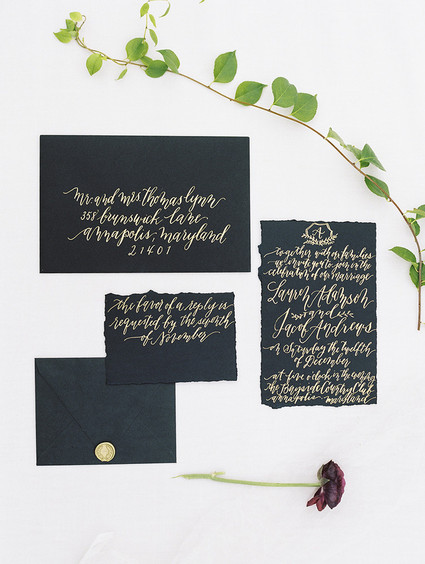 mr. and mrs. thomas lynn
358 brunswick lane
annapolis, maryland
21401
the favor of a reply is
requested by the seventh
of November
A
together with our families
we invite you to join in the
celebration of our marriage
Lauren Adamson
and
Jacob Andrews
on Saturday the twelfth
of December
at five o'clock in the evening
the Bayside Country Club
annapolis maryland